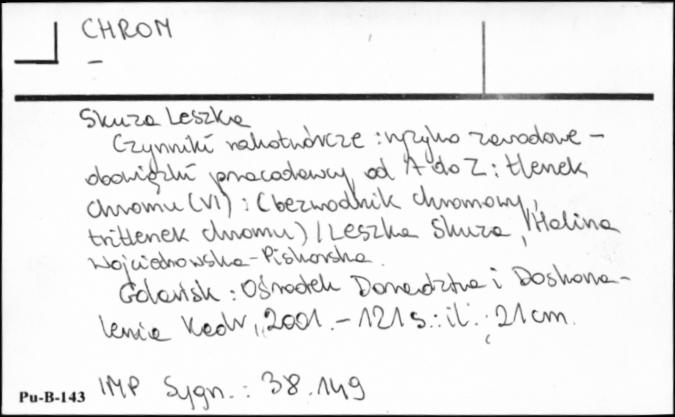 CHROM
–
Skuza Leszka
Czynniki rakotwórcze : ryzyko zawodowe –
obowiązki pracodawcy od A do Z : tlenek
chromu (VI) : (bezwodnik chromowy,
tritlenek chromu) / Leszka Skuza, Halina
Wojciechowska-Piskorska.
Gdańsk : Ośrodek Doradztwa i Doskona-
lenia Kadr, 2001. – 121 s. : il. ; 21 cm.
Pu-B-143 IMP Sygn. : 38.149